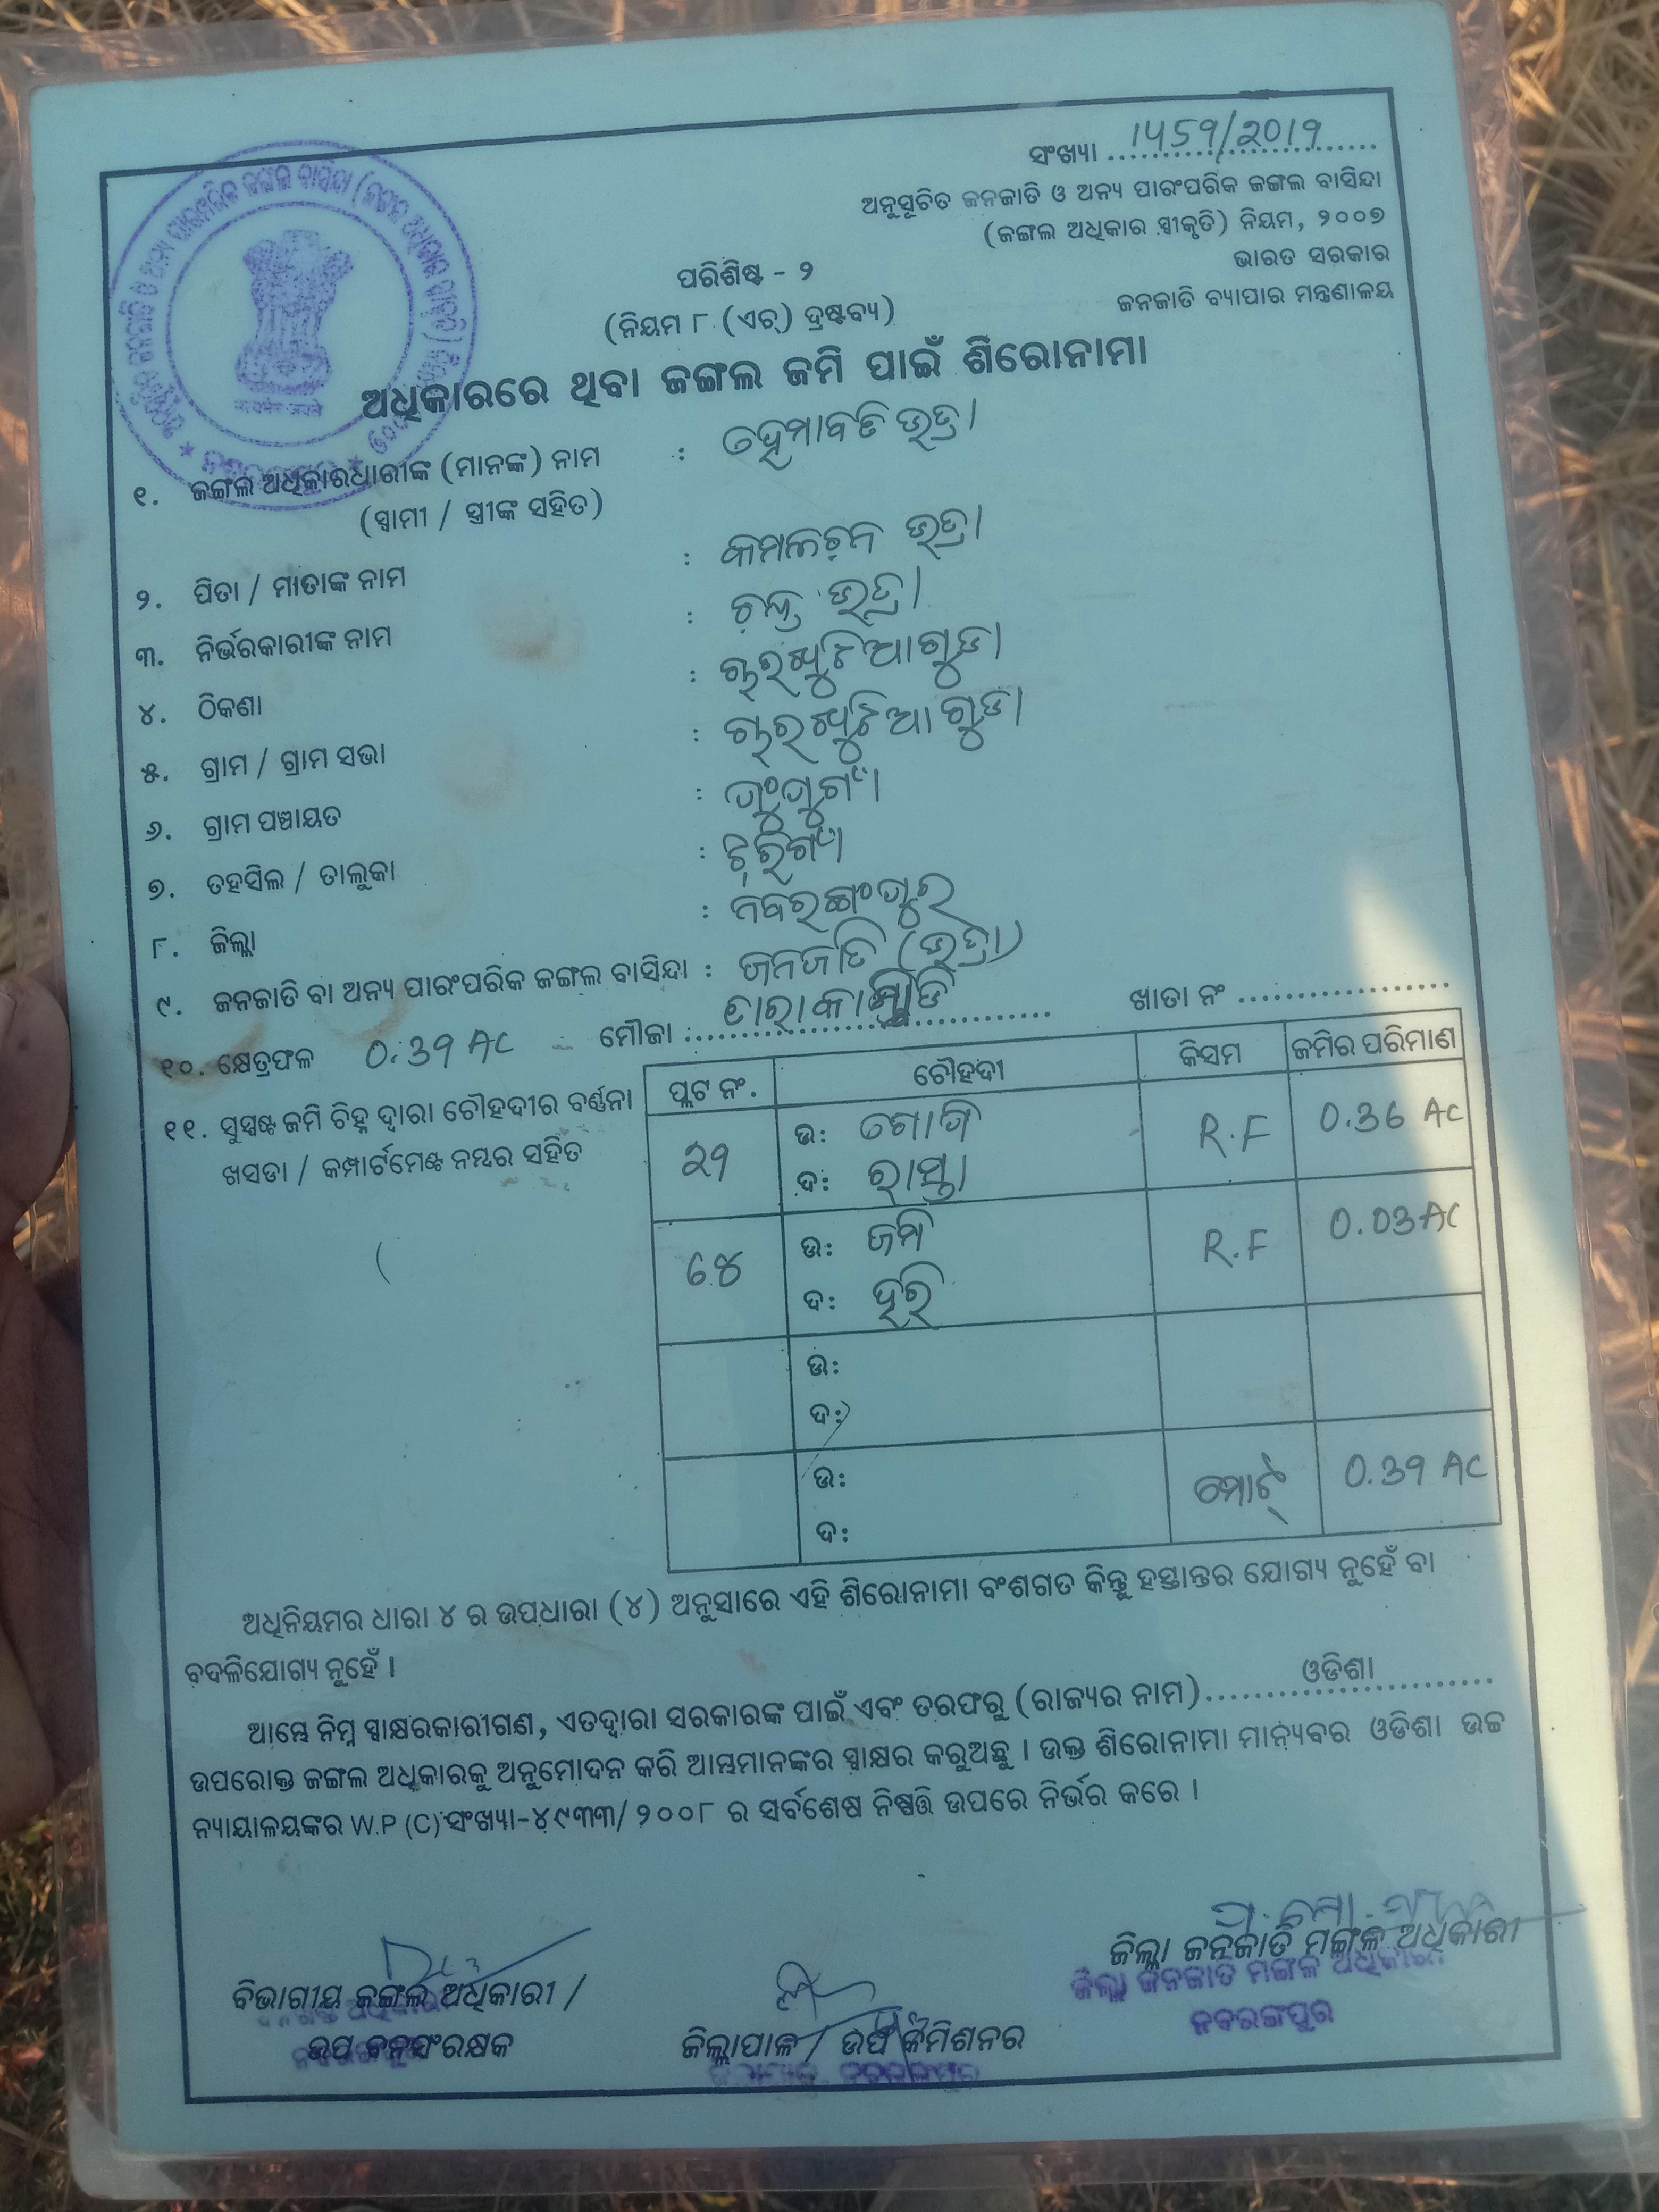 ସଂଖ୍ୟା ..୧୪୨୧/୨୦୧୨..
ଅନୁସୂଚିତ ଜନଜାତି ଓ ଅନ୍ୟ ପାରଂପରିକ ଜଙ୍ଗଲ ବାସିନ୍ଦା
(ଜଙ୍ଗଲ ଅଧିକାର ସ୍ୱୀକୃତି) ନିୟମ, ୨୦୦୭
ଭାରତ ସରକାର
ଜନଜାତି ବ୍ୟାପାର ମନ୍ତ୍ରଣାଳୟ
ପରିଶିଷ୍ଟ - ୨
(ନିୟମ ୮ (ଏଚ୍) ଦ୍ରଷ୍ଟବ୍ୟ)
ଅଧିକାରରେ ଥିବା ଜଙ୍ଗଲ ଜମି ପାଇଁ ଶିରୋନାମା
୧. ଜଙ୍ଗଲ ଅଧିକାରଧାରୀଙ୍କ (ମାନଙ୍କ) ନାମ : ହେମାବତି ଭତ୍ରା
(ସ୍ୱାମୀ / ସ୍ତ୍ରୀଙ୍କ ସହିତ)
୨. ପିତା / ମାତାଙ୍କ ନାମ : କମଳଚନ ଭତ୍ରା
୩. ନିର୍ଭରକାରୀଙ୍କ ନାମ : ଭତ୍ରା
୪. ଠିକଣା :
୫. ଗ୍ରାମ / ଗ୍ରାମ ସଭା :
୬. ଗ୍ରାମ ପଞ୍ଚାୟତ :
୭. ତହସିଲ / ତାଲୁକା :
୮. ଜିଲ୍ଲା : ନବରଙ୍ଗପୁର
୯. ଜନଜାତି ବା ଅନ୍ୟ ପାରଂପରିକ ଜଙ୍ଗଲ ବାସିନ୍ଦା : ଜନଜାତି (ଭତ୍ରା)
୧୦. କ୍ଷେତ୍ରଫଳ 0.39 AC ମୌଜା : ଖାତା ନଂ
୧୧. ସୁସ୍ପଷ୍ଟ ଜମି ଚିହ୍ନ ଦ୍ୱାରା ଚୌହଦୀର ବର୍ଣ୍ଣନା
ଖସଡା / କମ୍ପାର୍ଟମେଣ୍ଟ ନମ୍ବର ସହିତ
ପ୍ଲଟ ନଂ. ଚୌହଦୀ କିସମ ଜମିର ପରିମାଣ
ଉ: R.F 0.36 AC
ଦ: ରାସ୍ତା
ଉ: ଜମି R.F 0.03 AC
ଦ: ହରି
ଉ:
ଦ:
ଉ: ମୋଟ୍ 0.39 AC
ଦ:
ଅଧିନିୟମର ଧାରା ୪ ର ଉପଧାରା (୪) ଅନୁସାରେ ଏହି ଶିରୋନାମା ବଂଶଗତ କିନ୍ତୁ ହସ୍ତାନ୍ତର ଯୋଗ୍ୟ ନୁହେଁ ବା
ବଦଳିଯୋଗ୍ୟ ନୁହେଁ ।
ଆମ୍ଭେ ନିମ୍ନ ସ୍ୱାକ୍ଷରକାରୀଗଣ, ଏତଦ୍ୱାରା ସରକାରଙ୍କ ପାଇଁ ଏବଂ ତରଫରୁ (ରାଜ୍ୟର ନାମ) ଓଡିଶା
ଉପରୋକ୍ତ ଜଙ୍ଗଲ ଅଧିକାରକୁ ଅନୁମୋଦନ କରି ଆମ୍ଭମାନଙ୍କର ସ୍ୱାକ୍ଷର କରୁଅଛୁ । ଉକ୍ତ ଶିରୋନାମା ମାନ୍ୟବର ଓଡିଶା ଉଚ୍ଚ
ନ୍ୟାୟାଳୟଙ୍କର W.P (C) ସଂଖ୍ୟା-୪୯୩୩/୨୦୦୮ ର ସର୍ବଶେଷ ନିଷ୍ପତ୍ତି ଉପରେ ନିର୍ଭର କରେ ।
ବିଭାଗୀୟ ଜଙ୍ଗଲ ଅଧିକାରୀ /
ଉପ ବନସଂରକ୍ଷକ
ଜିଲ୍ଲାପାଳ / ଉପ କମିଶନର
ଜିଲ୍ଲା ଜନଜାତି ମଙ୍ଗଳ ଅଧିକାରୀ
ଜିଲ୍ଲା ଜନଜାତି ମଙ୍ଗଳ ଅଧିକାରୀ
ନବରଙ୍ଗପୁର